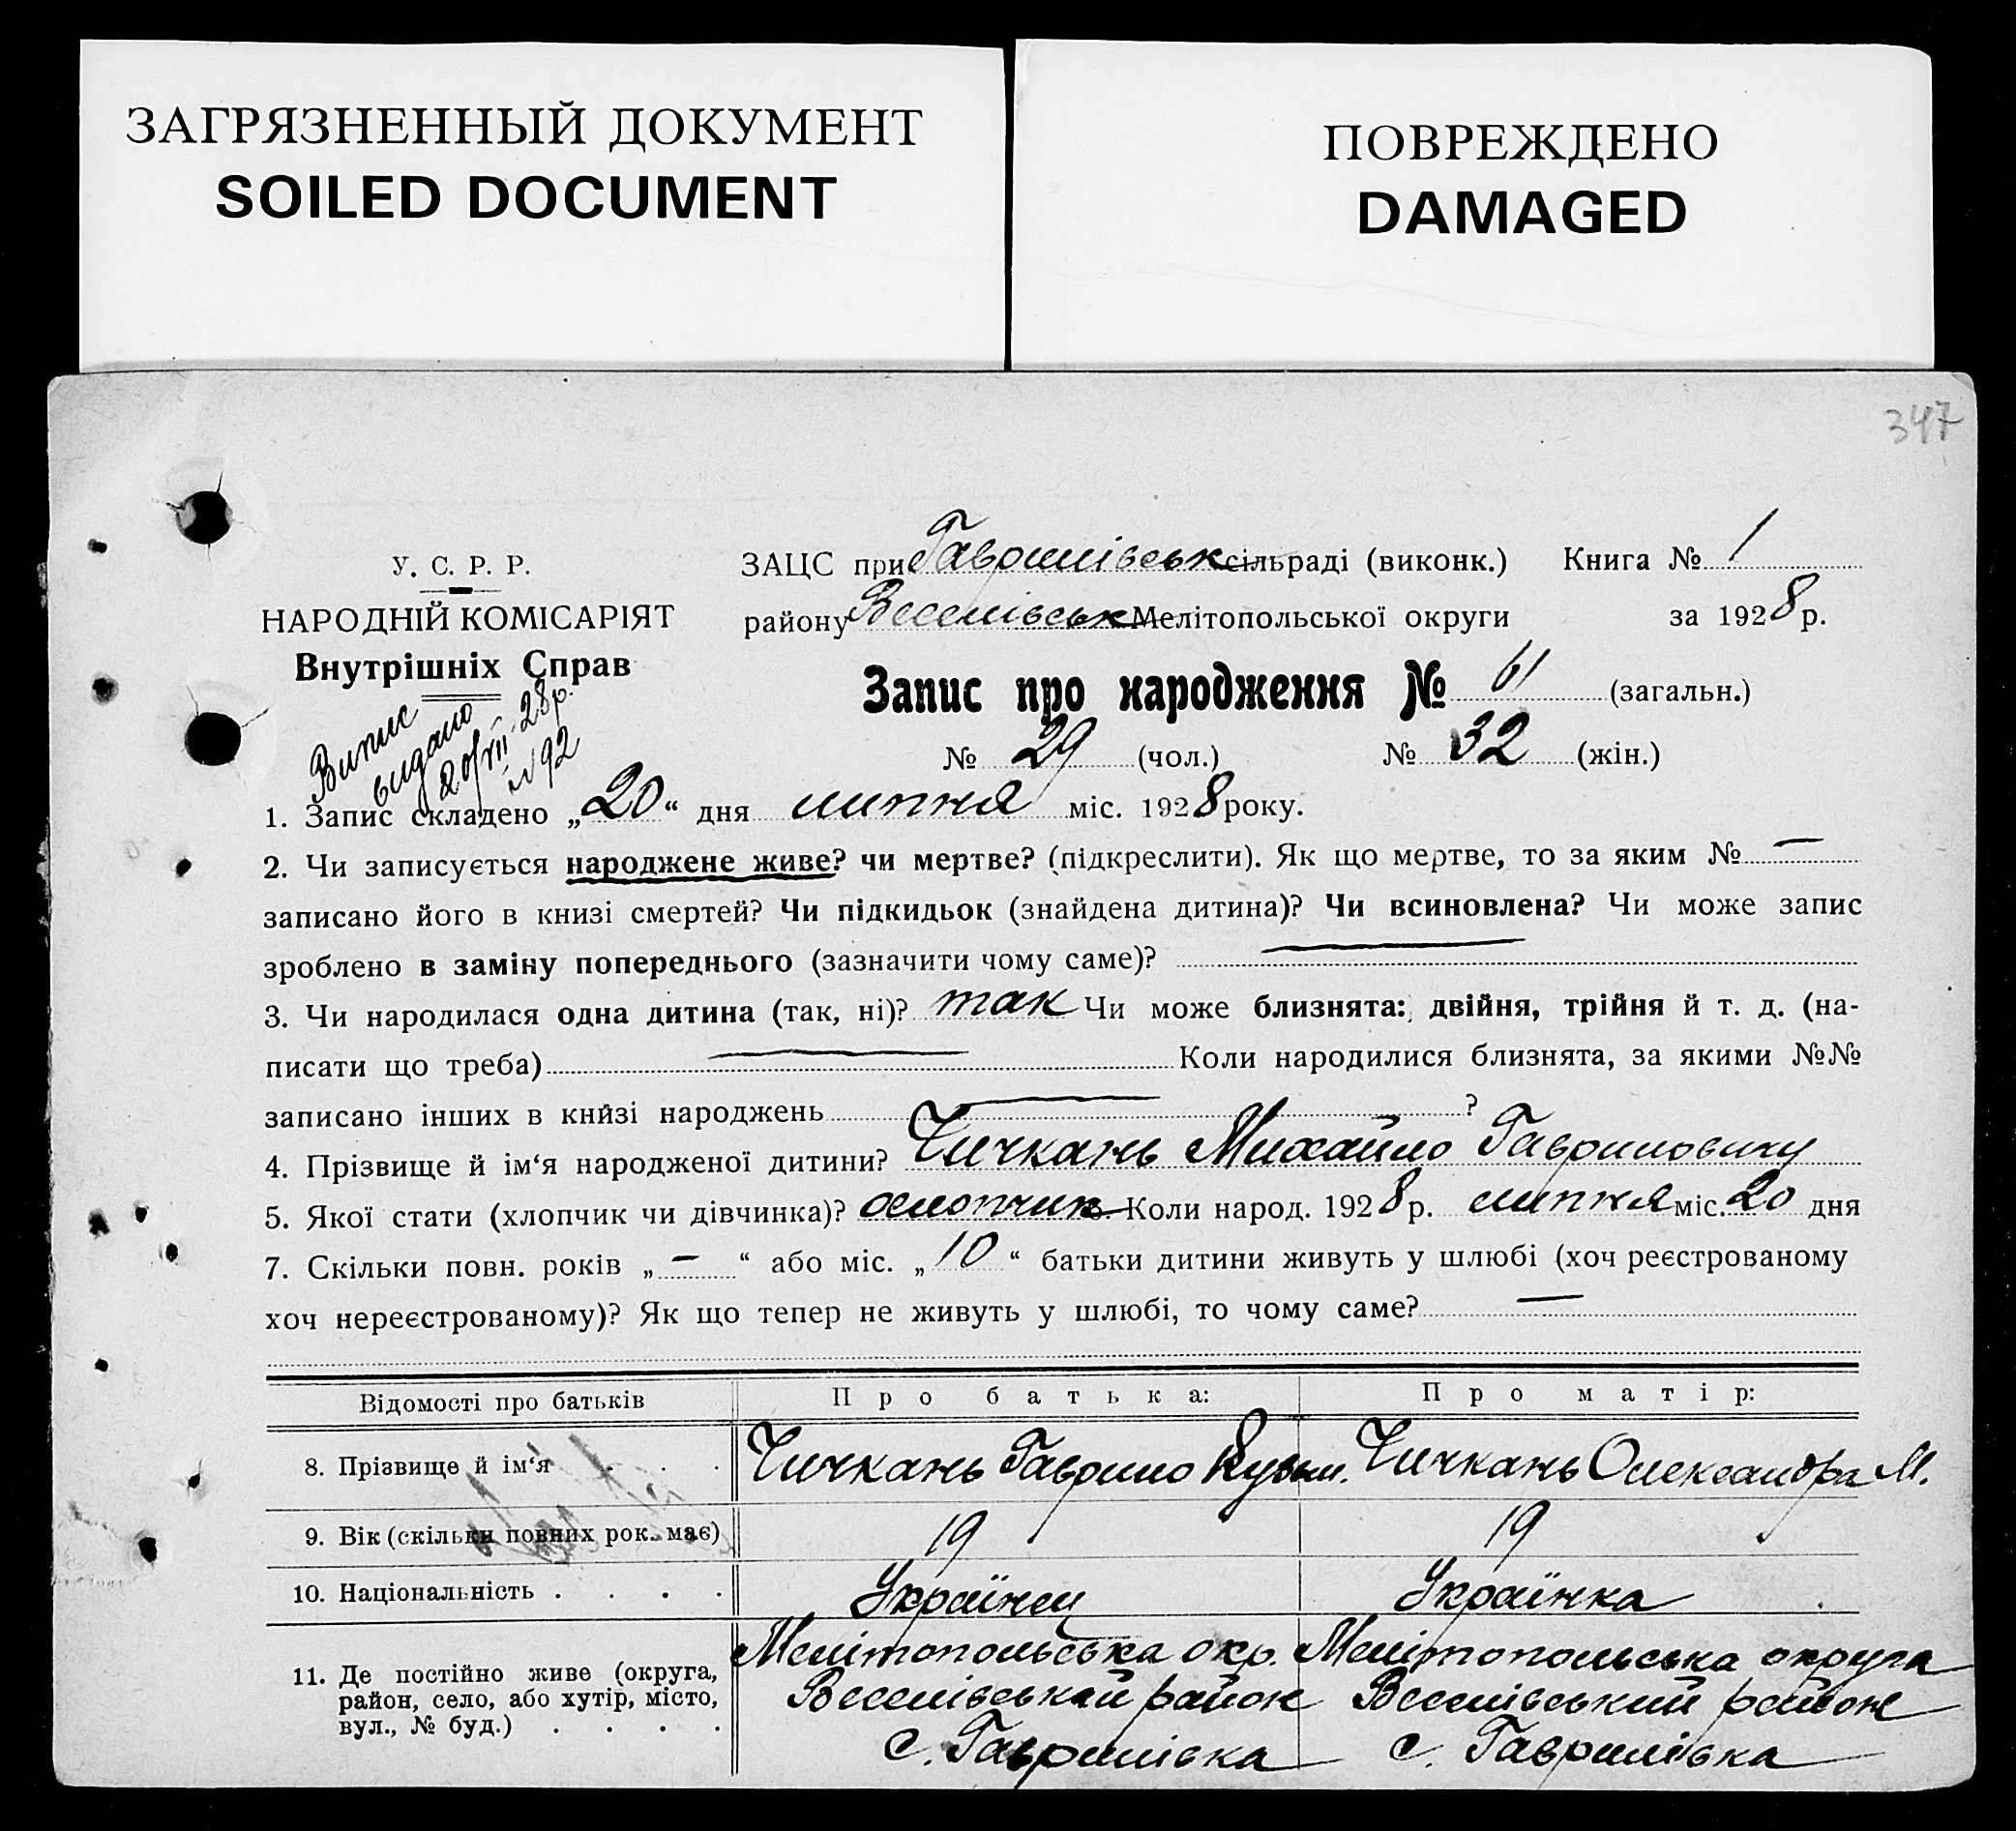 ЗАГРЯЗНЕННЫЙ ДОКУМЕНТ
SOILED DOCUMENT
ПОВРЕЖДЕНО
DAMAGED
347
У. С. Р. Р.
НАРОДНІЙ КОМІСАРІЯТ
Внутрішніх Справ
Випис
видано
20/VII 28р.
№ 92
ЗАЦС при Гаврилівськ сільраді (виконк.) Книга № 1
району Веселівськ Мелітопольської округи за 1928 р.
Запис про народження № 61 (загальн.)
№ 29 (чол.) № 32 (жін.)
1. Запис складено „20“ дня липня міс. 1928 року.
2. Чи записується народжене живе? чи мертве? (підкреслити). Як що мертве, то за яким № —
записано його в книзі смертей? Чи підкидьок (знайдена дитина)? Чи всиновлена? Чи може запис
зроблено в заміну попереднього (зазначити чому саме)? —
3. Чи народилася одна дитина (так, ні)? так Чи може близнята: двійня, трійня й т. д. (на-
писати що треба) — Коли народилися близнята, за якими №№
записано інших в книзі народжень — ?
4. Прізвище й ім‘я народженої дитини? Чичкань Михайло Гаврилович
5. Якої стати (хлопчик чи дівчинка)? хлопчик Коли народ. 1928 р. липня міс. 20 дня
7. Скільки повн. років „—“ або міс. „10“ батьки дитини живуть у шлюбі (хоч реєстрованому
хоч нереєстрованому)? Як що тепер не живуть у шлюбі, то чому саме? —
Відомості про батьків Про батька: Про матір:
8. Прізвище й ім‘я . . . Чичкань Гаврило Кузьм. Чичкань Олександра М.
9. Вік (скільки повних рок. має) 19 19
10. Національність . . . . Українец Українка
11. Де постійно живе (округа,
район, село, або хутір, місто,
вул., № буд.) . . . .
Мелітопольська окр.
Веселівський район
с. Гаврилівка
Мелітопольська округа
Веселівський район
с. Гаврилівка